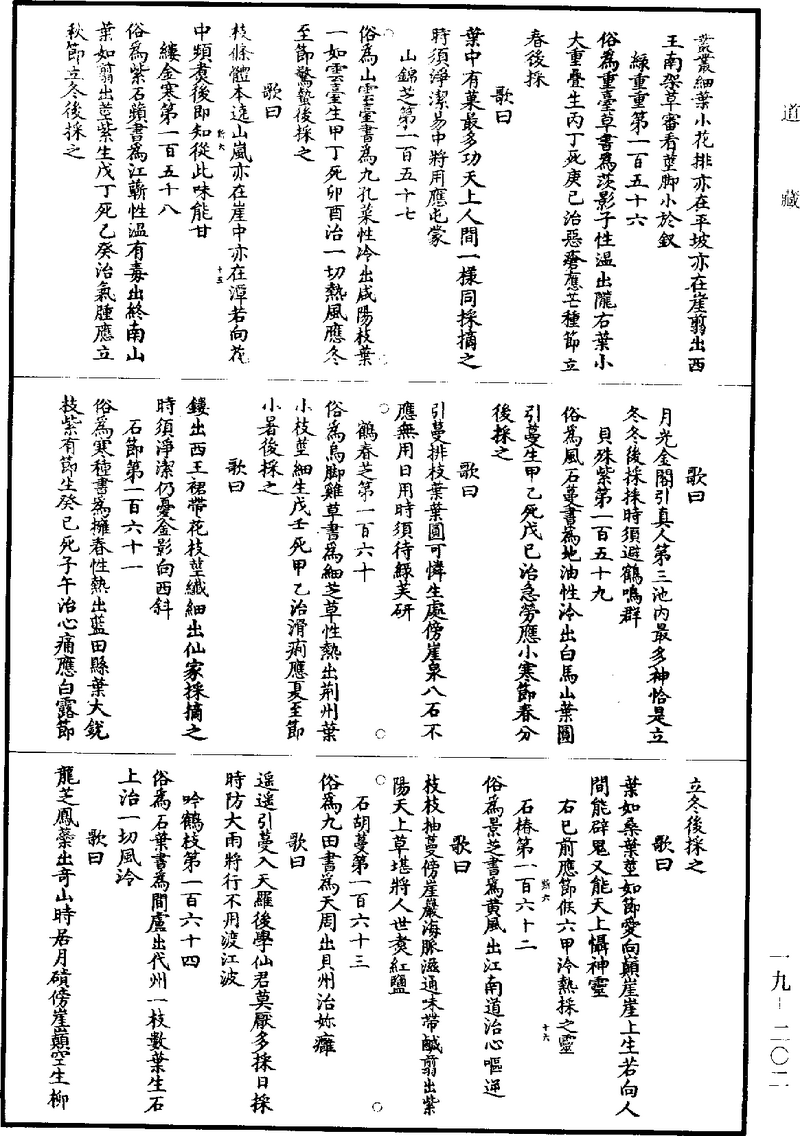 道藏
叢叢細葉小花排亦在平坡亦在崖翦出西
王南架草審看莖脚小於釵
綠重重第一百五十六
俗為重臺草書為茨影子性溫出隴右葉小
大重疊生丙丁死庚已治惡瘡應芒種節立
春後採
歌曰
葉中有菓最多功天上人間一樣同採摘之
時須淨潔易中將用應屯蒙
山錦芝第一百五十七
俗為山雲臺書為九孔菜性冷出咸陽枝葉
一如雲臺生甲丁死卯酉治一切熱風應冬
至節驚蟄後採之
歌曰
枝條體本遶山嵐亦在崖中亦在潭若向花
中頻煮後即知從此味能甘
縷金寒第一百五十八
俗為紫石蘋書為江蘄性溫有毒出終南山
葉如翦出莖紫生戊丁死乙癸治氣腫應立
秋節立冬後採之
歌曰
月光金閣引真人第三池內最多神恰是立
冬冬後採採時須避鶴鳴群
貝殊紫第一百五十九
俗為風石蔓書為地油性冷出白馬山葉圓
引蔓生甲乙死戊已治急勞應小寒節春分
後採之
歌曰
引蔓排枝葉葉圓可憐生處傍崖泉八石不
應無用日用時須待綠芙研
鶴春芝第一百六十
俗為烏脚雞草書為細芝草性熱出荊州葉
小枝莖細生戊壬死甲乙治滑痢應夏至節
小暑後採之
歌曰
鏤出西王裙帶花枝莖纖細出仙家採摘之
時須淨潔仍憂金影向西斜
石節第一百六十一
俗為寒種書為擁春性熱出藍田縣葉大銳
枝紫有節生癸已死子午治心痛應白露節
立冬後採之
歌曰
葉如桑葉莖如節愛向巔崖崖上生若向人
間能辟鬼又能天上懾神靈
右已前應節候六甲冷熱採之靈
石椿第一百六十二
俗為景芝書為黃風出江南道治心嘔逆
歌曰
枝枝抽蔓傍崖巖海脈滋通味帶鹹翦出紫
陽天上草堪將人世煮紅鹽
石胡蔓第一百六十三
俗為九田書為天周出貝州治妳癰
歌曰
遥遥引蔓入天羅後學仙君莫厭多採日採
時防大雨將行不用渡江波
吟鶴枝第一百六十四
俗為石葉書為間盧出代州一枝數葉生石
上治一切風冷
歌曰
龍芝鳳藥出奇山時居月磧傍崖巔空生柳
一九－二〇二